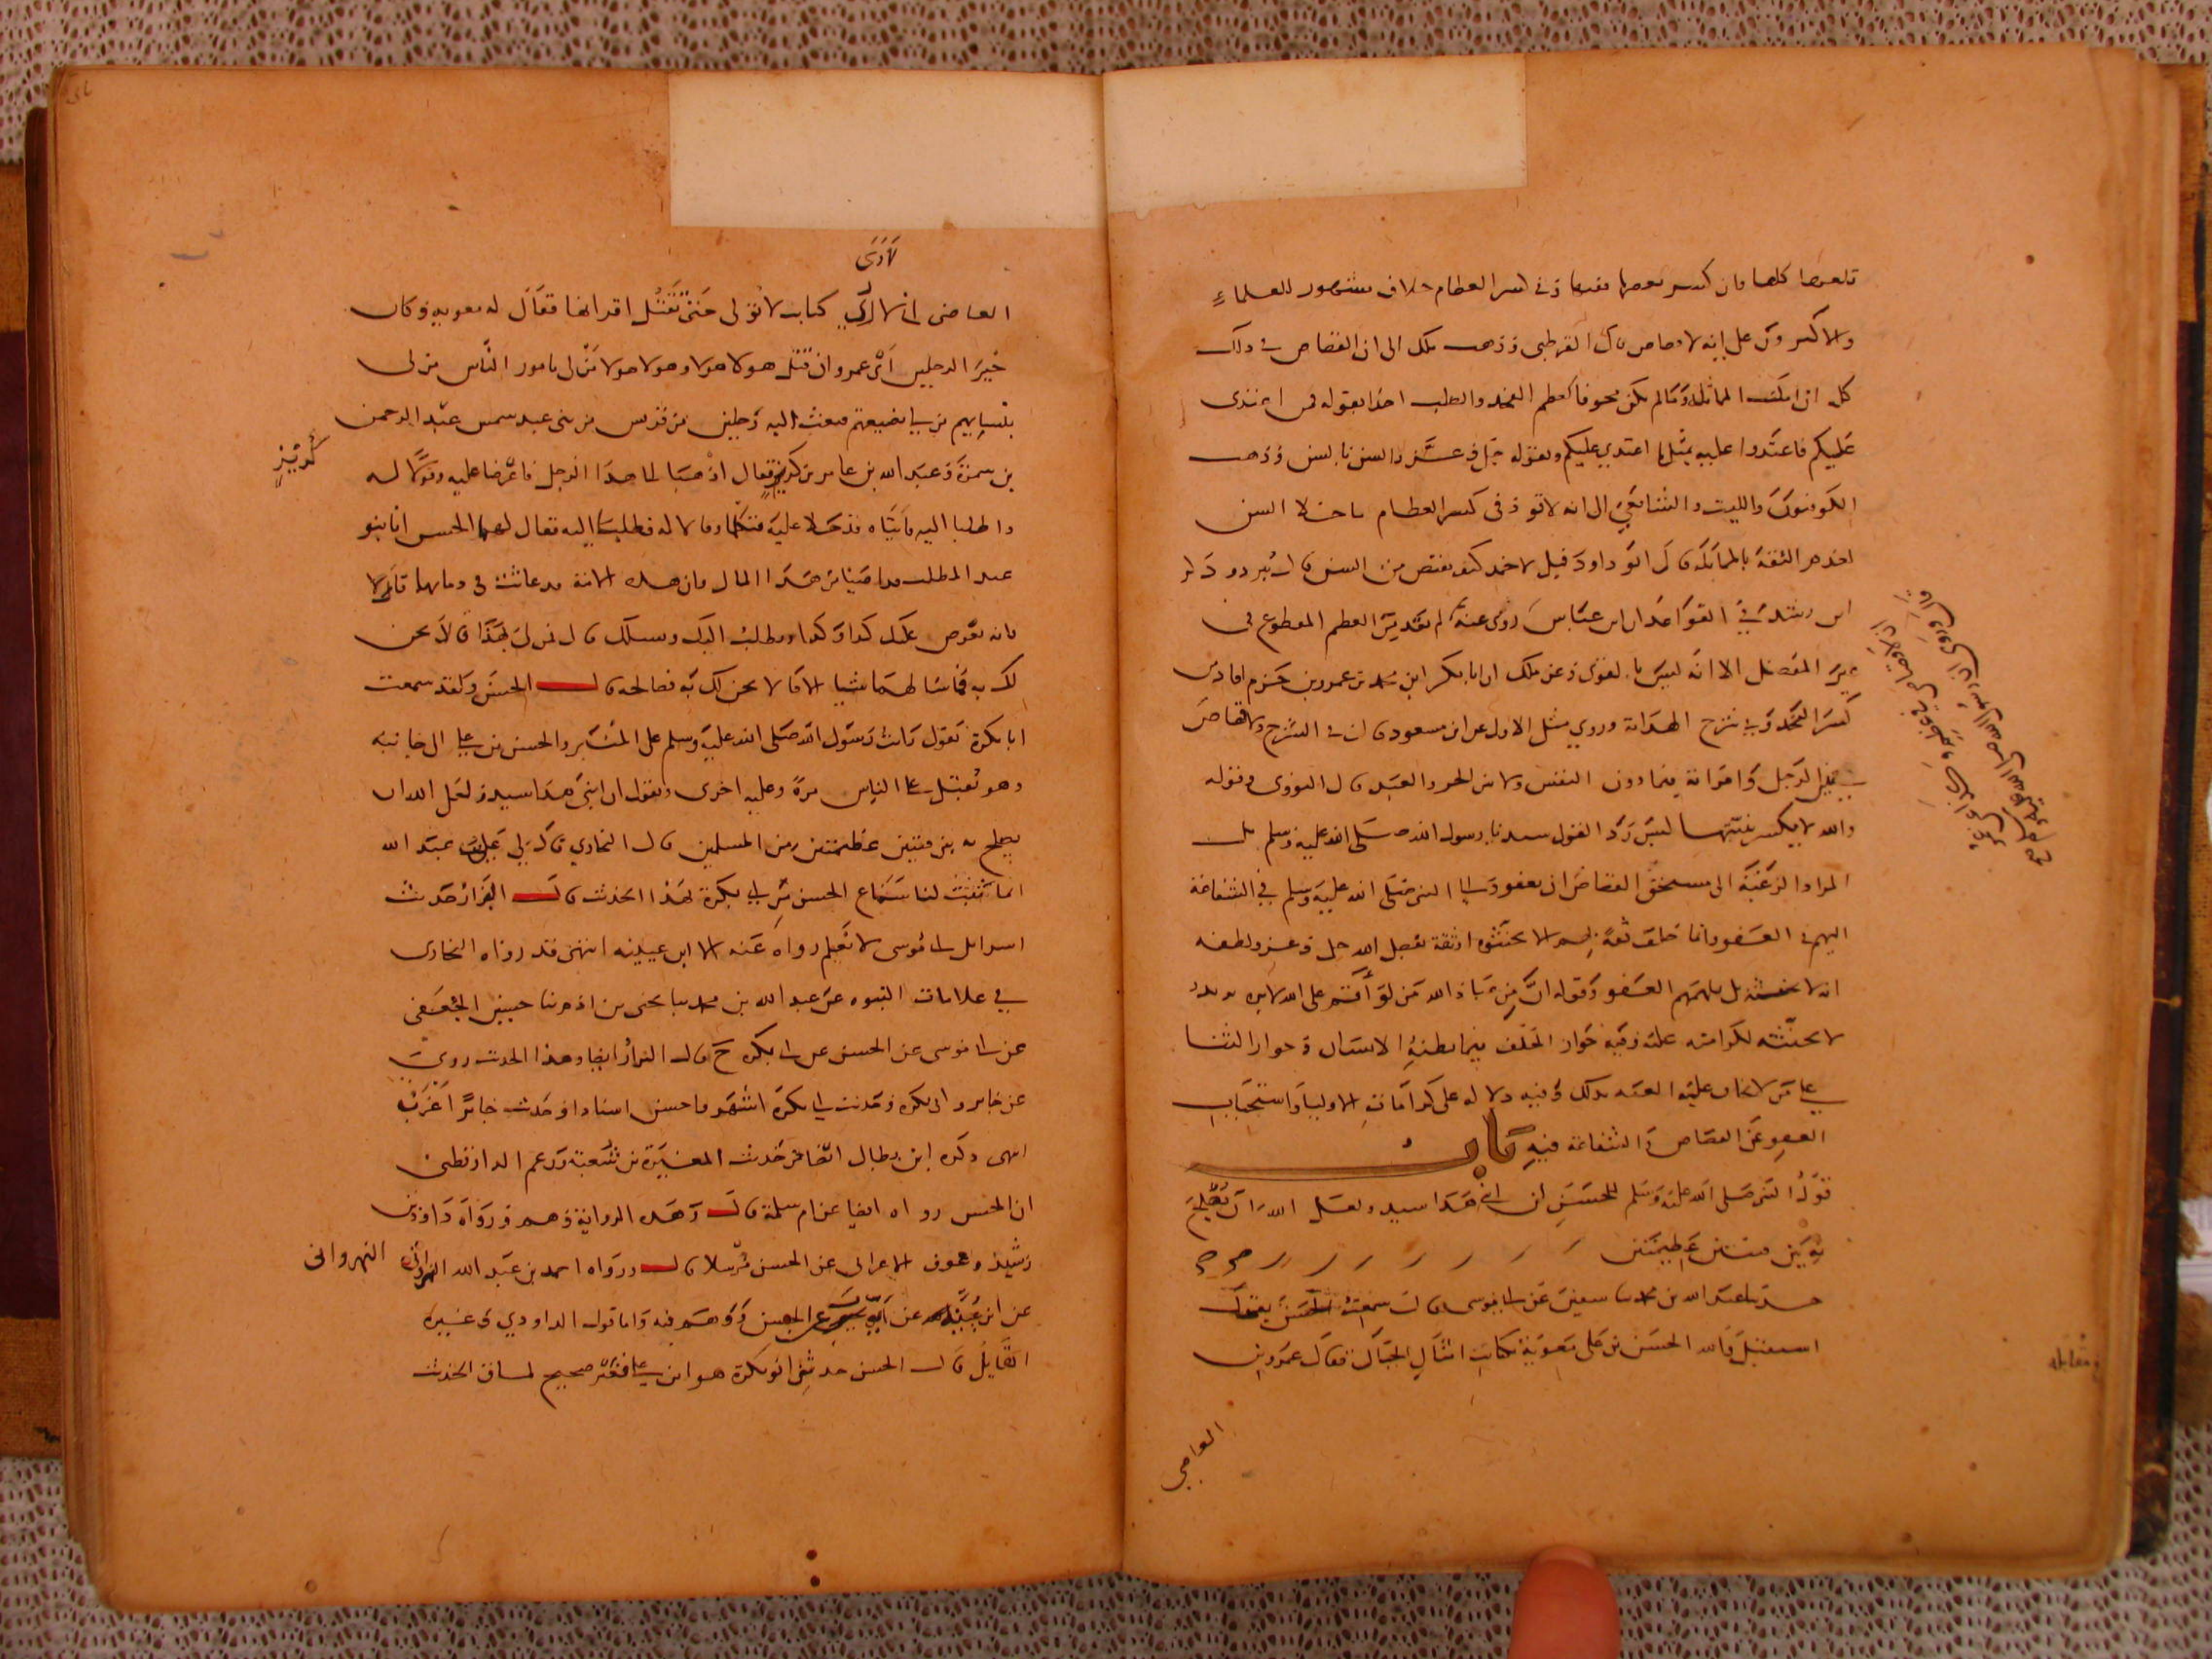 قلعها كلها فان كسر بعضها ففيها وفي كسر العظام خلاف مشهور للعلماء
والاكثرون على انه لا قصاص قال القرطبي وذهب ملك الى ان القصاص في ذلك
كله ان امكنت المماثلة وما لم يكن مخوفا كعظم الفخذ والصلب اخذا بقوله فمن اعتدى
عليكم فاعتدوا عليه بمثل ما اعتدي عليكم وبقوله جل وعز والسن بالسن وذهب
الكوفيون والليث والشافعي الى انه لا قود في كسر العظام ما خلا السن
لعدم الثقة بالمماثلة قال ابو داود قيل لاحمد كيف يقتص من السن قال يبرد وذكر
ابن رشد في القواعد ان ابن عباس روى عنه لم يقد من العظم المقطوع في
غير المفصل الا انه ليس بالقوي وعن ملك ان ابا بكر ابن محمد بن عمرو بن حزم اقاد من
كسر الفخذ وفي شرح الهداية وروي مثل الاول عن ابن مسعود قال في الشرح ولا قصاص
بين الرجل وامراته فيما دون النفس ولا بين الحر والعبد قال النووي وقوله
والله لا يكسر ثنيتها ليس رد القول سيدنا رسول الله صلى الله عليه وسلم بل
المراد الرغبة الى مستحق القصاص ان يعفو والى النبي صلى الله عليه وسلم في الشفاعة
اليهم في العفو وانما حلف ثقة بهم الا يحنثوه او ثقة بفضل الله جل وعز ولطفه
انه لا يحنثه بل يلهمهم العفو وقوله ان من عباد الله من لو أقسم على الله لابره
لا يحنثه لكرامته عليه وفيه جواز الحلف فيما يظنه الانسان وجواز الثنا
على من لا يخاف عليه الفتنة بذلك وفيه دلالة على كرامات الاوليا واستحباب
العفو عن القصاص والشفاعة فيه باب
قول النبي صلى الله عليه وسلم للحسن ان ابني هذا سيد ولعل الله ان يصلح
به بين فئتين عظيمتين
حدثنا عبد الله بن محمد ثنا سفين عن ابي موسى قال سمعت الحسن يقول
استقبل والله الحسن بن علي معوية بكتائب امثال الجبال فقال عمرو بن
العاصي
مقابلة
لارى
العاصي اني لارى كتائب لا تولى حتى تقتل اقرانها فقال له معوية وكان
خير الرجلين أي عمرو ان قتل هولا هولا وهولا هولا من لي بامور الناس من لي
بنسايهم من لي بضيعتهم فبعث اليه رجلين من قريش من بني عبد شمس عبد الرحمن
بن سمرة وعبد الله بن عامر بن كريز فقال اذهبا الى هذا الرجل فاعرضا عليه وقولا له
كُريز
واطلبا اليه فاتياه فدخلا عليه فتكلما وقالا له فطلبا اليه فقال لهما الحسن انا بنو
عبد المطلب قد اصبنا من هذا المال وان هذه الامة قد عاثت في دمايها قالا
فانه يعرض عليك كذا وكذا ويطلب اليك ويسلك قال فمن لي بهذا قالا نحن
لك به فما سالهما شيا الا قالا نحن لك به فصالحه قال الحسن ولقد سمعت
ابا بكرة يقول رايت رسول الله صلى الله عليه وسلم على المنبر والحسن بن علي الى جانبه
وهو يقبل على الناس مرة وعليه اخرى ويقول ان ابني هذا سيد ولعل الله ان
يصلح به بين فئتين عظيمتين من المسلمين قال البخاري قال لي علي بن عبد الله
انما ثبت لنا سماع الحسن من ابي بكرة بهذا الحديث قال البزار حديث
اسرايل ابي موسى لا نعلم رواه عنه الا ابن عيينه انتهى قد رواه البخاري
في علامات النبوه عن عبد الله بن محمد ثنا يحيى بن ادم ثنا حسين الجعفي
عن ابي موسى عن الحسن عن ابي بكرة ح قال البزار ايضا وهذا الحديث روي
عن جابر وابي بكرة وحديث ابي بكرة اشهر واحسن اسنادا وحديث جابر اغرب
انتهى وذكره ابن بطال ايضا من حديث المغيرة بن شعبة وزعم الدارقطني
ان الحسن رواه ايضا عن ام سلمة قال وهذه الرواية وهم ورواه داود بن
رشيد وعوف الاعرابي عن الحسن مرسلا قال ورواه احمد بن عبد الله النهرواني
النهرواني
عن ابن عيينه عن ايوب عن الحسن ووهم فيه واما قول الداودي وغيره
القايل قال الحسن حدثني ابو بكرة هو ابن علي فغير صحيح لمساق الحديث